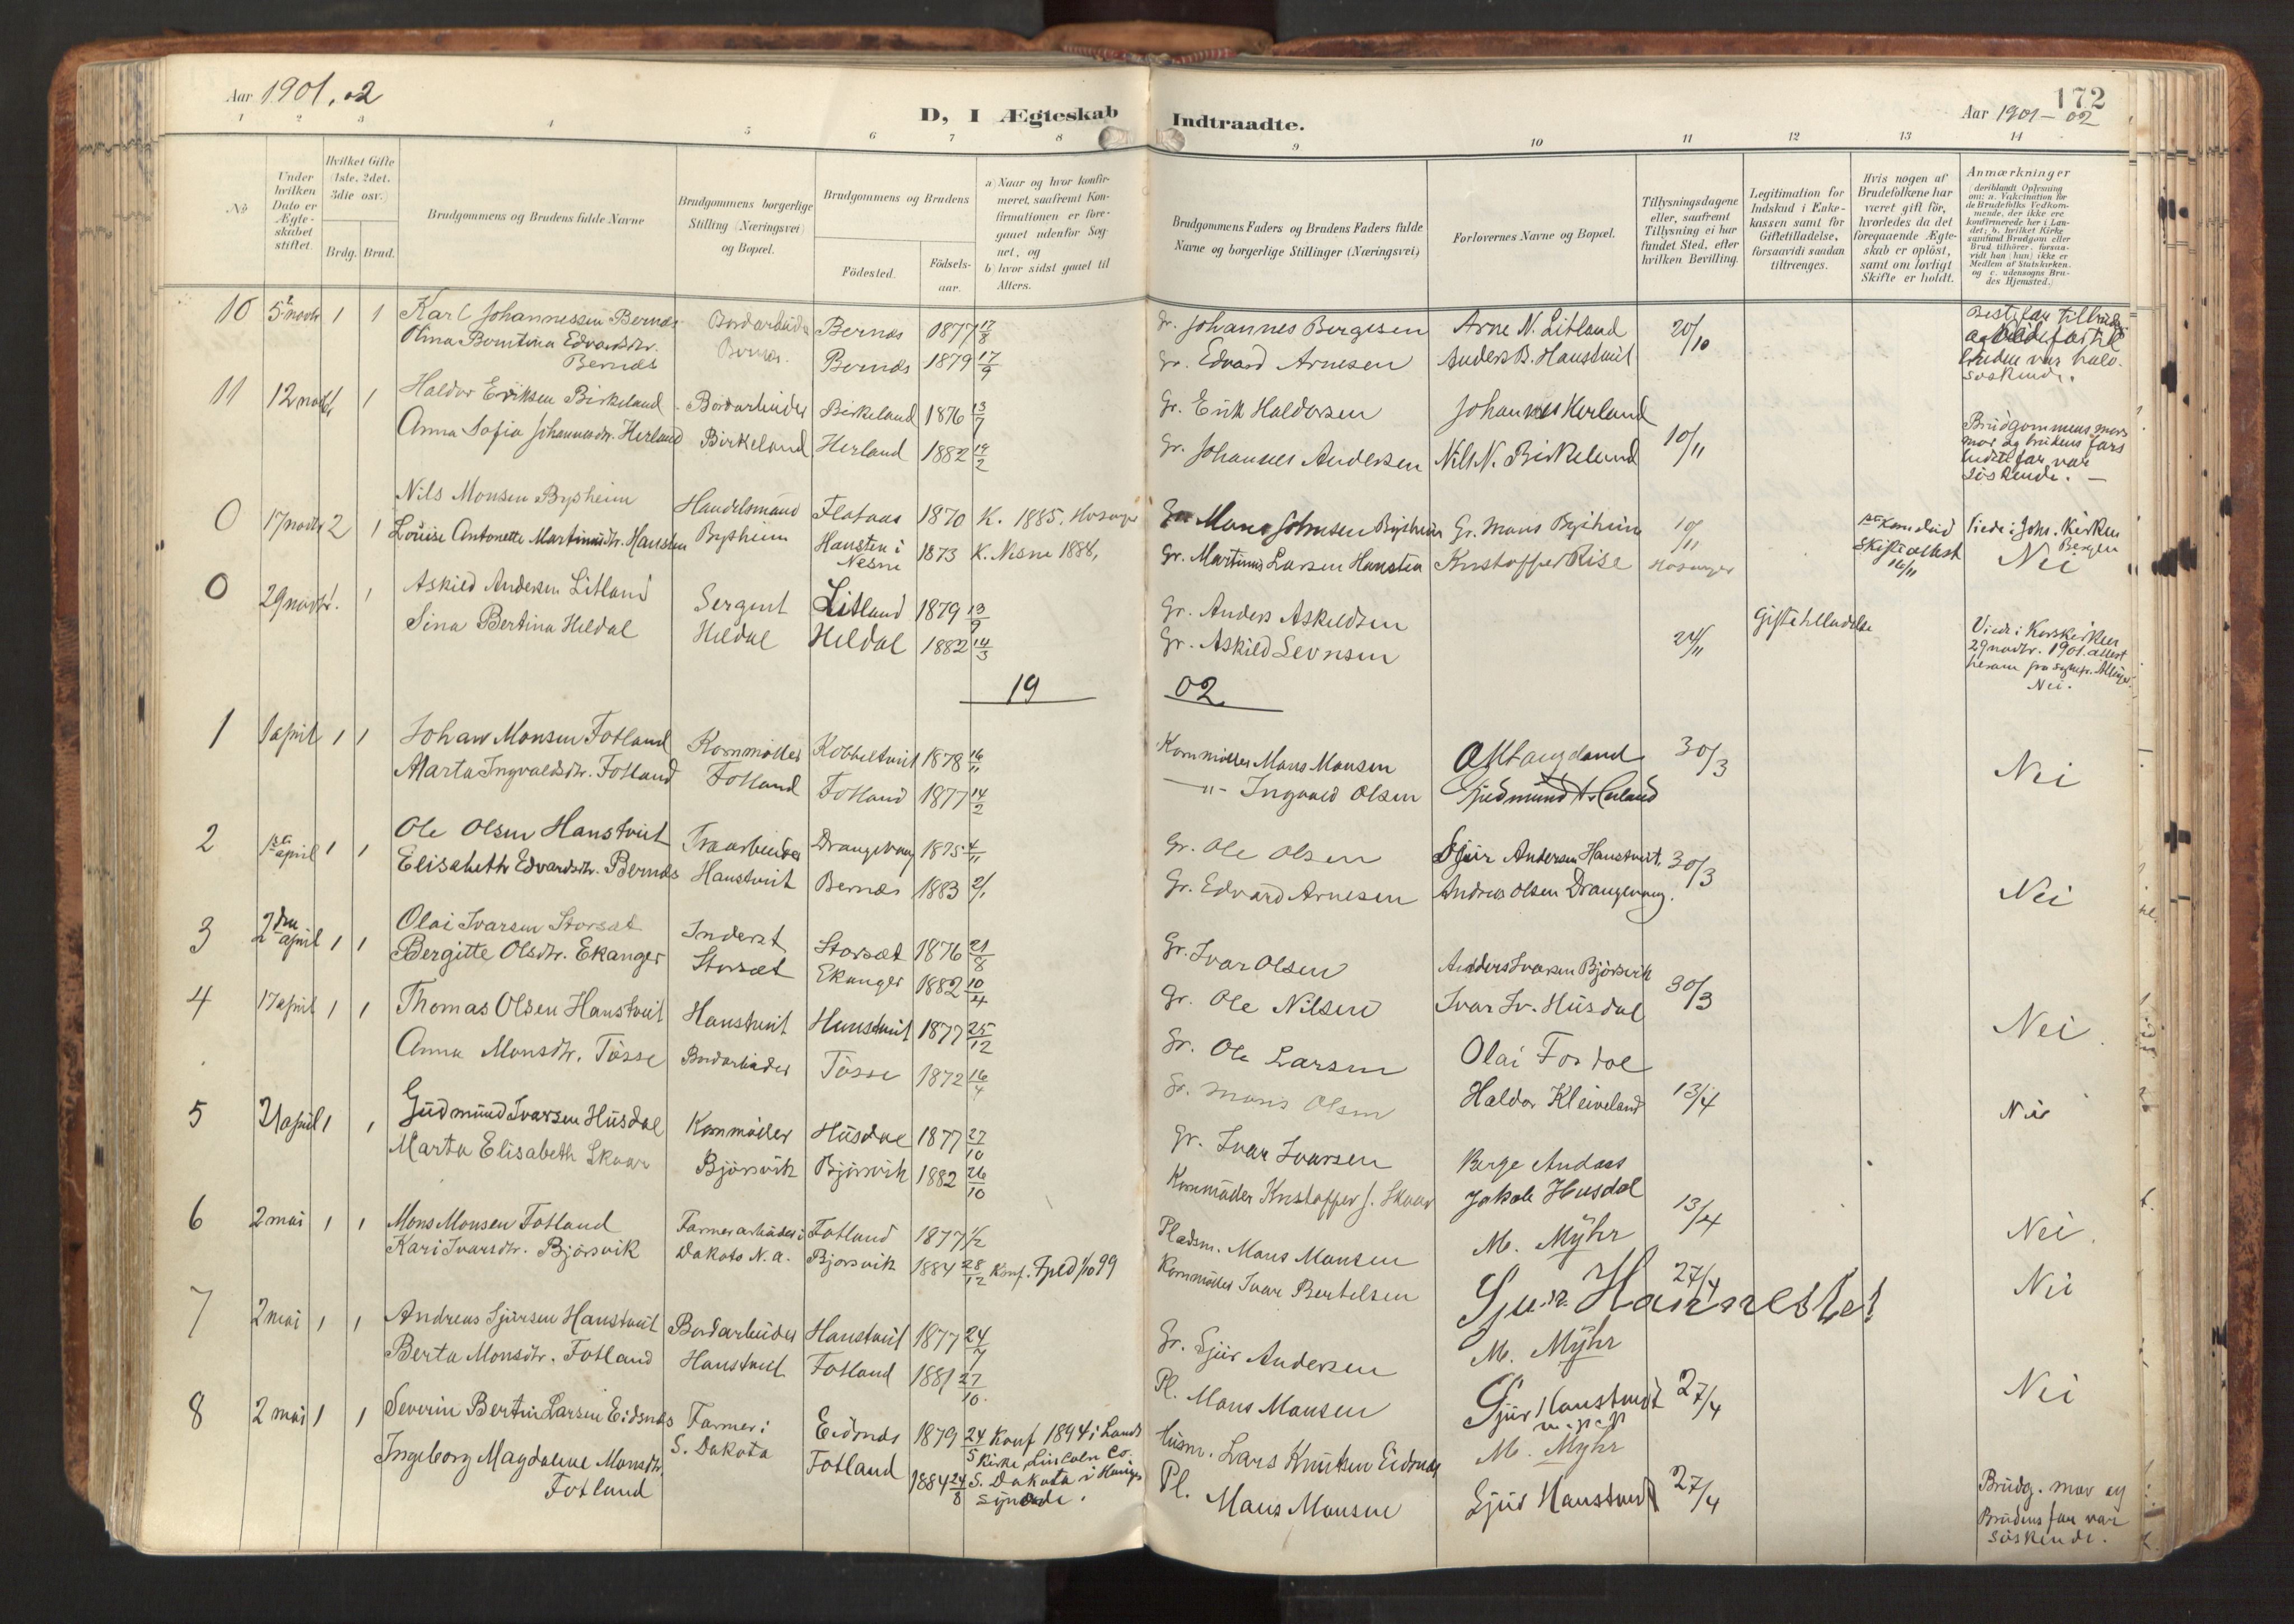 Aar 1901, 02
D, I Ægteskab Indtraadte.
172
Aar 1901-02
1 2 3 4 5 6 7 8 9 10 11 12 13 14
No
Under hvilken Dato er Ægteskabet stiftet.
Hvilket Gifte (1ste, 2det, 3die osv.)
Brdg. Brud.
Brudgommens og Brudens fulde Navne
Brudgommens borgerlige Stilling (Næringsvei) og Bopæl.
Brudgommens og Brudens
Födested.
Födselsaar.
a) Naar og hvor konfirmeret, saafremt Konfirmationen er foregaaet udenfor Sognet, og
b) hvor sidst gaaet til Alters.
Brudgommens Faders og Brudens Faders fulde Navne og borgerlige Stillinger (Næringsvei)
Forlovernes Navne og Bopæl.
Tillysningsdagene eller, saafremt Tillysning ei har fundet Sted, efter hvilken Bevilling.
Legitimation for Indskud i Enkekassen samt for Giftetilladelse, forsaavidt saadan tiltrænges.
Hvis nogen af Brudefolkene har været gift för, hvorledes da det foregaaende Ægteskab er oplöst, samt om lovligt Skifte er holdt.
Anmærkninger
(deriblandt Oplysning om: a. Vakcination for de Brudefolks Vedkommende, der ikke ere konfirmerede her i Landet; b. hvilket Kirkesamfund Brudgom eller Brud tilhörer, forsaavidt han (hun) ikke er Medlem af Statskirken, og c. udensogns Brudes Hjemsted.)
10 5 novbr 1 1 Karl Johannessen Bernæs Bordarbeider Bernæs 1877 17/8 Gr. Johannes Bergesen Arne N. Litland 20/10
Olina Berntina Edvardsdtr. Bernæs Bernæs 1879 17/9 Gr. Edvard Arnesen Anders B. Haustveit
Bernæs
brudens var halv-
söskende.
11 12 novbr 1 1 Haldor Eriksen Birkeland Bordarbeider Birkeland 1876 13/7 Gr. Erik Haldorsen Johannes Herland
Anna Sofia Johannesdtr. Herland Birkeland Herland 1882 14/2 Gr. Johannes Andersen Nils N. Birkeland 10/11
Brudgommens mors
mor og brudens fars
var
söskende. —
0 17 novbr 2 1 Nils Monsen Bysheim Handelsmand Flataas 1870 K. 1885. Hosanger Gr. Mons Johnsen Bysheim Gr. Mons Bysheim 10/11
Louise Antonette Martinusdtr. Hansten Bysheim Hansten i 1873 K. Nesne 1888, Gr. Martinus Larsen Hansten Kristoffer Rise Hosanger
Nesne
Skifteattest 16/11
Viede i Johs. Kirken
Bergen
Nei
0 29 novbr. 1 Askild Andersen Litland Sergent Litland 1879 13/9 Gr. Anders Askeldsen
Sina Bertina Heldal Heldal Heldal 1882 14/3 Gr. Askild Sevnsen 24/11 Giftetilladelse
Viede i Korskirken
29 novbr. 1901. attest
Nei.
19 02
1 1 april 1 1 Johan Monsen Fotland Kornmöller Kobbeltveit 1878 16/11 Kornmöller Mons Monsen 30/3
Marta Ingvaldsdtr. Fotland Fotland Fotland 1877 14/2 -"- Ingvald Olsen Nei
2 1ste april 1 1 Ole Olsen Haustveit Træarbeider Drangevaag 1875 4/11 Gr. Ole Olsen Sjur Andersen Haustveit. 30/3
Elisabeth Edvardsdtr. Bernæs Haustveit Bernæs 1883 2/1 Gr. Edvard Arnesen Andreas Olsen Drangevaag. Nei
3 2den april 1 1 Olai Ivarsen Storsæt Inderst Storsæt 1876 21/8 Gr. Ivar Olsen Anders Ivarsen Björsvik 30/3
Bergitte Olsdtr. Ekanger Storsæt Ekanger 1882 10/4 Gr. Ole Nilsen Ivar Iv. Husdal Nei
4 17 april 1 1 Thomas Olsen Haustveit Haustveit Haustveit 1877 25/12 Gr. Ole Larsen Olai Fosdal
Anna Monsdtr. Tösse Bordarbeider Tösse 1872 16/4 Gr. Mons Olsen Haldor Kleiveland 13/4 Nei
5 21 april 1 1 Gudmund Ivarsen Husdal Kornmöller Husdal 1877 27/10 Gr. Ivar Ivarsen Berge Andaas
Marta Elisabeth Skaar Björsvik Björsvik 1882 26/10 Kornmöller Kristoffer J. Skaar Jakob Husdal 13/4 Nei.
6 2 mai 1 1 Mons Monsen Fotland Farmerarbeider i Fotland 1877 1/2 Pladsm. Mons Monsen M. Myhr 27/4
Kari Ivarsdtr. Björsvik Dakota N. A. Bjorsvik 1884 28/12 Konf. 1/10 99 Kornmöller Ivar Bertelsen Nei
7 2 mai 1 1 Andreas Sjursen Haustveit Bordarbeider Haustveit 1877 24/7 Gr. Sjur Andersen M. Myhr
Berta Monsdtr. Fotland Haustveit Fotland 1881 27/10. Pl. Mons Monsen Sjur Haustveit 27/4 Nei
8 2 mai 1 1 Severin Bertin Larsen Eidsnæs Farmer i Eidsnæs 1879 24/5 Konf 1894 i Lands Husm. Lars Knutsen Eidsnæs M. Myhr
Kirke, Lincoln Co.
Ingeborg Magdalene Monsdtr. S. Dakota Fotland 1884 24/8 S. Dakota i Hauges Pl. Mons Monsen Sjur Haustveit 27/4
Fotland synode.
Brudg. mor og
Brudens far var
söskende.